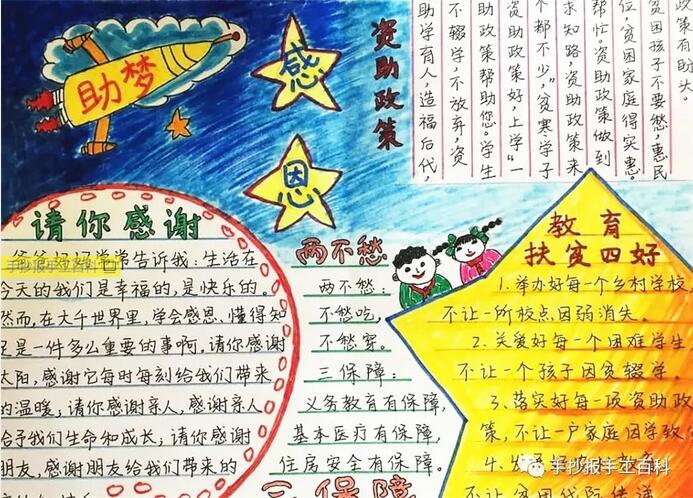 助梦
感
恩
资助政策
政策有助大。
贫困孩子不要愁,惠民
位,贫困家庭得实惠。
帮忙,资助政策做到
求知路,资助政策来
个都不少",贫寒学子
资助政策好,上学"一
助政策帮助您。学生
不辍学,不放弃,资
助学育人,造福后代,
请你感谢
手抄报手工百科
常告诉我:生活在
今天的我们是幸福的,是快乐的。
然而,在大千世界里,学会感恩、懂得知
足是一件多么重要的事啊。请你感谢
太阳,感谢它每时每刻给我们带来
的温暖;请你感谢亲人,感谢亲人
给予我们生命和成长;请你感谢
朋友,感谢朋友给我们带来的
两不愁
两不愁:
不愁吃,
不愁穿。
三保障:
义务教育有保障,
基本医疗有保障,
住房安全有保障。
三保障
教育
扶贫四好
1.举办好每一个乡村学校,
不让一所校点因弱消失。
2.关爱好每一个困难学生,
不让一个孩子因贫辍学。
3.落实好每一项资助政
策,不让一户家庭因学致
4.
手抄报手工百科